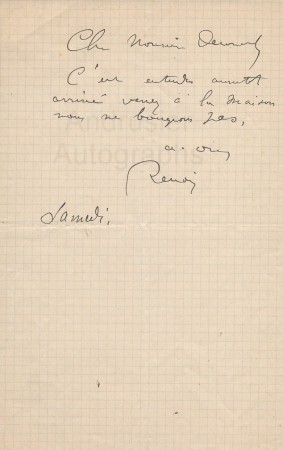 Cher Monsieur
C'est entendu aussitôt
arrivé venez à la maison
nous ne bougeons pas,
a. v.
Renoir
Samedi,
Autographs